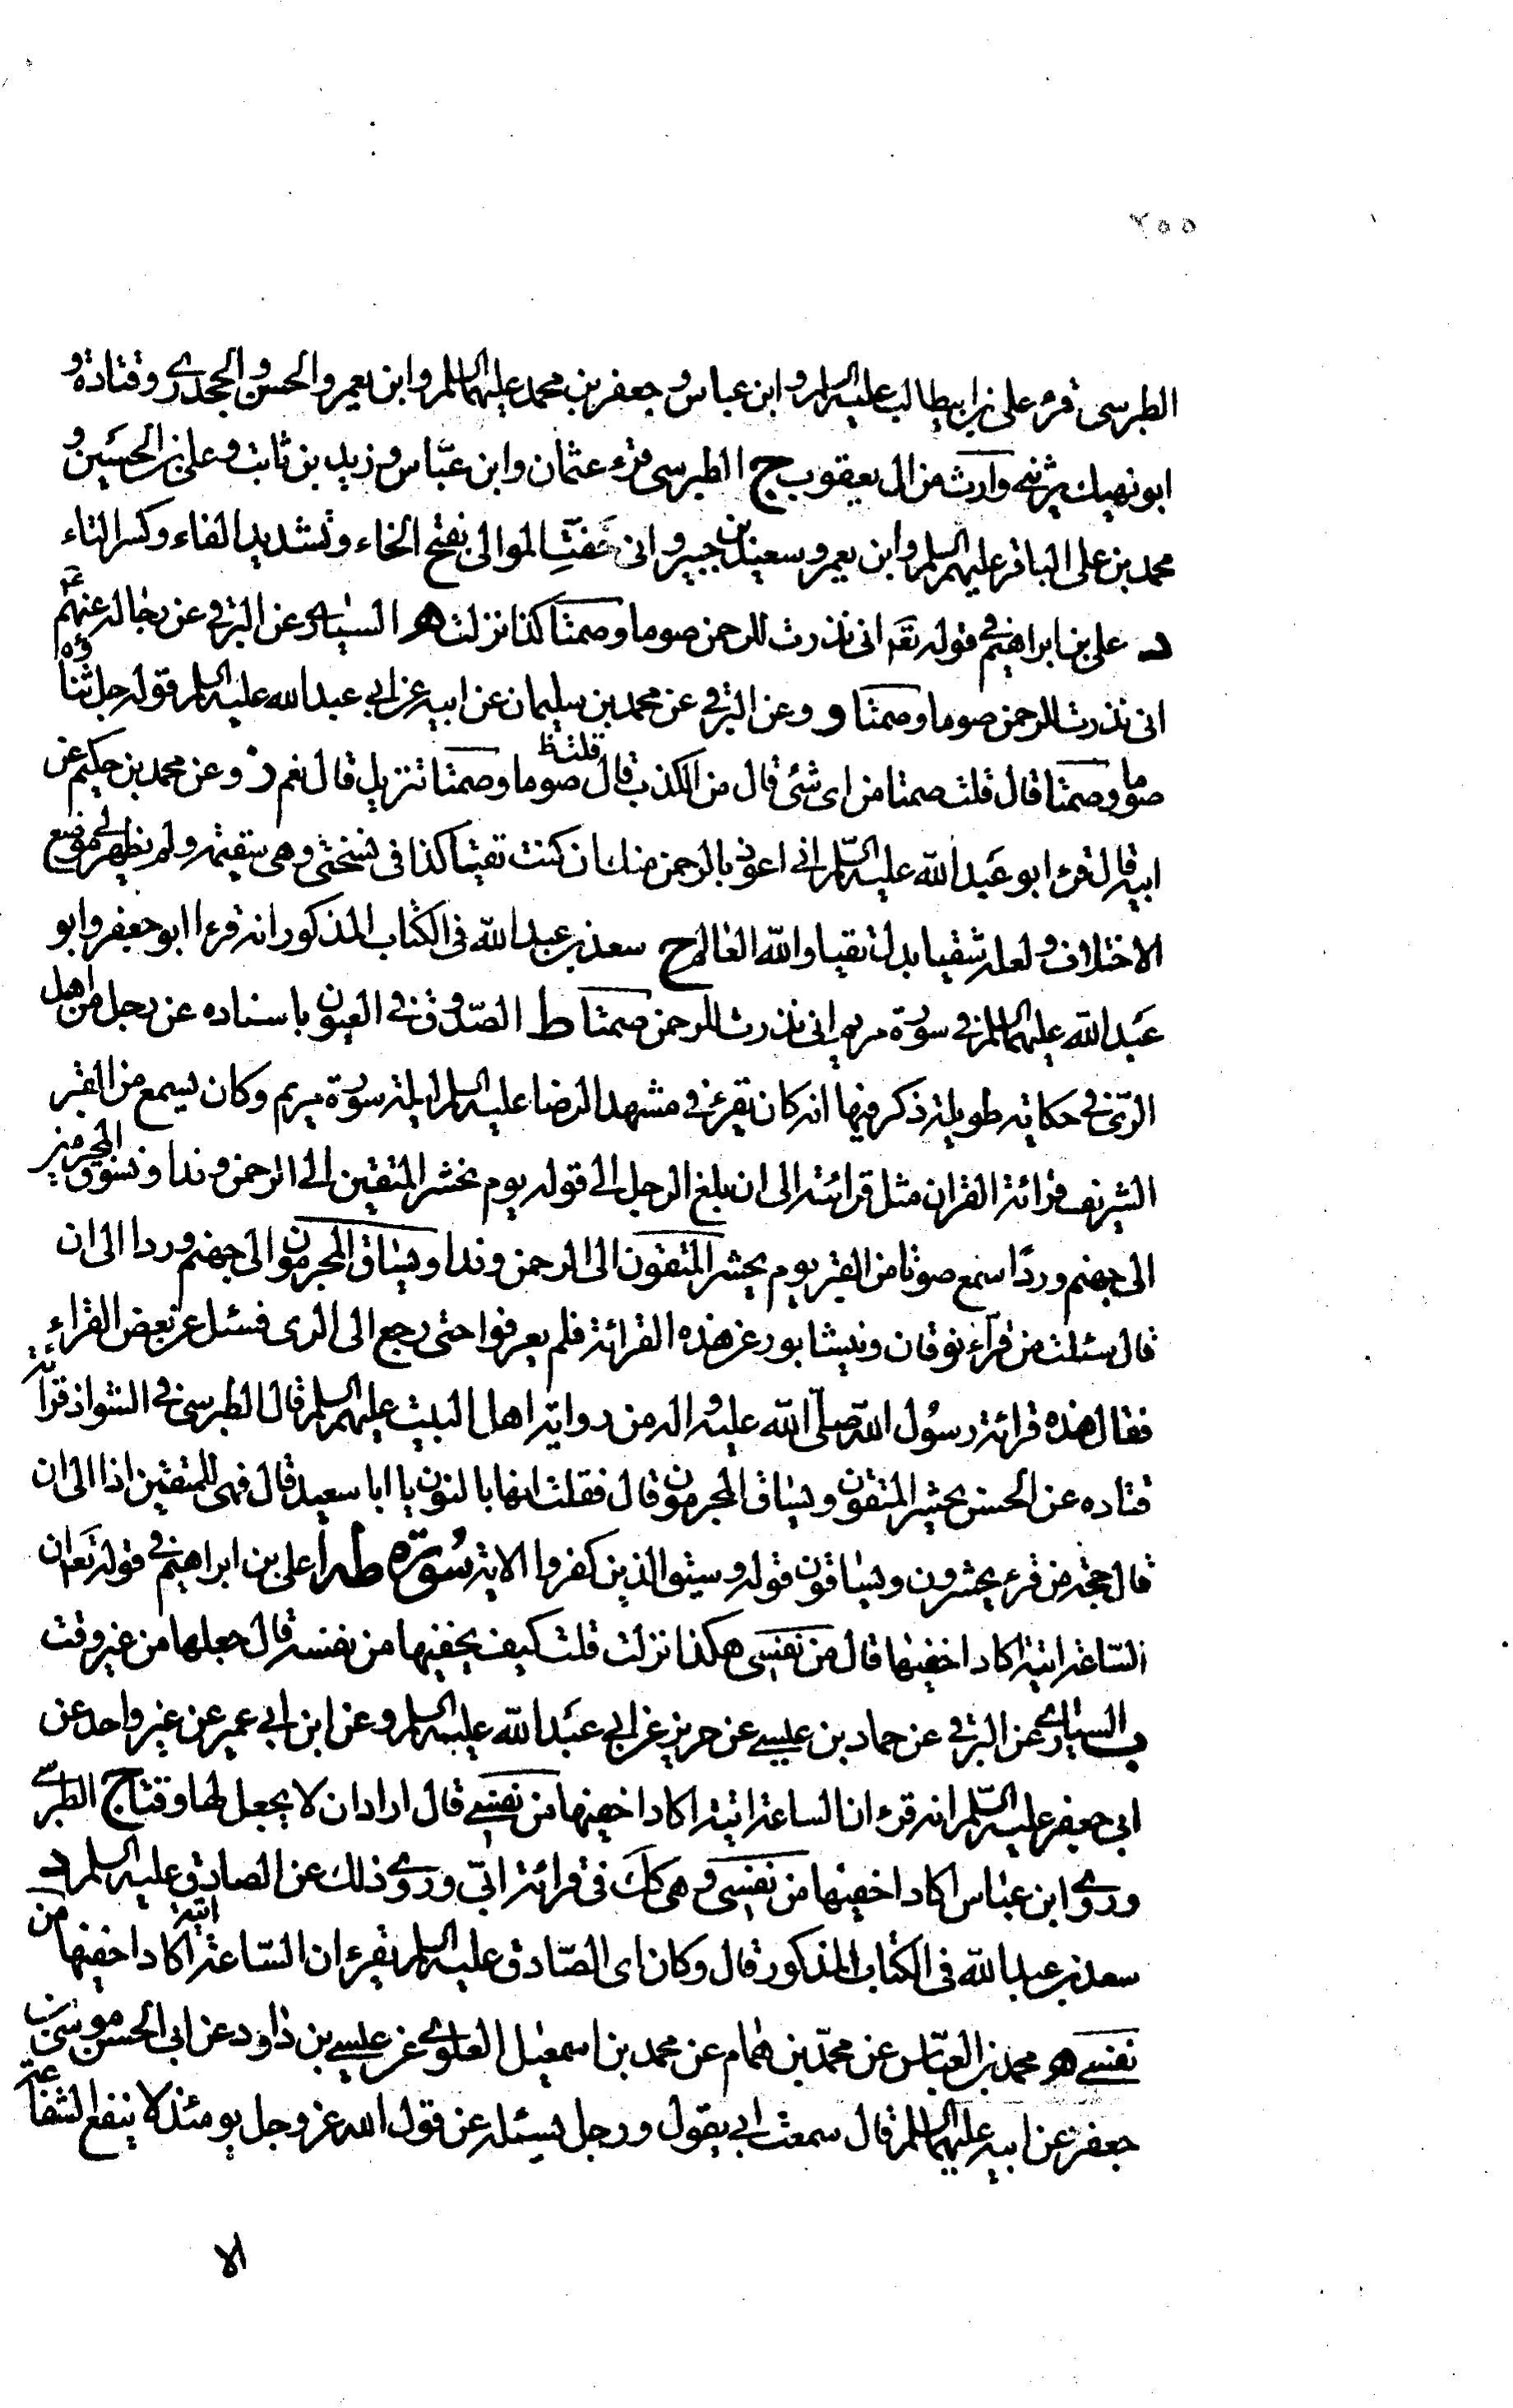 ٢٥٥
الطبرسى قرء على بن ابيطالب عليه السلم وابن عباس وجعفر بن محمد عليهما السلم وابن يعمر والحسن والجحدرى وقتادة و
ابو نهيك يرثنى وارث من ال يعقوب ج الطبرسى قرء عثمان وابن عبّاس وزيد بن ثابت وعلى بن الحسَين و
محمد بن على الباقر عليهم السلم وابن يعمر وسعيد بن جبير وانى خَفّتِ الموالى بفتح الخاء وتشديد الفاء وكسر التاء
د على بن ابراهيم فى قوله تعَ انى نذرت للرحمن صوما وصمتا كذا نزلت ه السيارى عن البرقى عن رجاله عنهم عَ
انى نذرت للرحمن صوما وصمتا و وعن البرقى عن محمد بن سليمان عن ابيه عن ابى عبد الله عليه السلم قوله جل ثناؤه
صوما وصمتا قال قلت صمتا من اى شئ قال من الكذب قال قلت ظ صوما وصمتا تنزيل قال نعم ز وعن محمد بن حكيم عن
ابيه قال قرء ابو عبد الله عليه السّلم انى اعوذ بالرحمن منك ان كنت تقيا كذا فى نسختى وهى سقيمة ولم يظهر لى موضع
الاختلاف ولعله شقيا بدل تقيا والله العالم ح سعد بن عبد الله فى الكتاب المذكور انه قرء ابو جعفر وابو
عَبد الله عليهما السلم فى سورة مريم انى نذرت للرحمن صمتا ط الصّدوق فى العيون باسناده عن رجل من اهل
الرّى فى حكاية طويلة ذكر فيها انه كان يقرء فى مشهد الرضا عليه السلم ليلة سورة مريم وكان يسمع من القبر
الشريف قرائة القران مثل قرائته الى ان بلغ الرجل الى قوله يوم نحشر المتقين الى الرحمن وفدا ونسوق المجرمين
الى جهنم وردًا سمع صوتا من القبر يوم يحشر المتقون الى الرحمن وفدا ويساق المجرمون الى جهنم وردا الى ان
قال سئلت من قرّاء نوقان ونيشابور عن هذه القرائة فلم يعرفوا حتى رجع الى الرى فسئل عن بعض القراء
فقال هذه قرائة رسُول الله صلّى الله عليه واله من رواية اهل البيت عليهم السلم قال الطبرسى فى الشواذ قرائة
قتاده عن الحسن يحشر المتقون ويساق المجرمون قال فقلت انها بالنون يا ابا سعيد قال فهى للمتقين اذا الى ان
قال حجة من قرء يحشرون ويساقون قوله وسيق الذين كفروا الاية سُورة طه ا على بن ابراهيم فى قوله تعَ ان
السّاعة اتية اكاد اخفيها قال من نفسى هكذا نزلت قلت كيف يخفيها من نفسه قال جعلها من غير وقت
ب السيارى عن البرقى عن حماد بن عيسى عن حريز عن ابى عبَد الله عليه السلم وعن ابن ابى عمير عن غير واحد عن
ابى جعفر عليه السّلم انه قرء ان الساعة اتية اكاد اخفيها من نفسى قال اراد ان لا يجعل لها وقتا ج الطبرسى
وروى ابن عباس اكاد اخفيها من نفسى وهى كك فى قرائة ابىّ وروى ذلك عن الصادق عليه السلم د
سعد بن عبد الله فى الكتاب المذكور قال وكان اى الصّادق عليه السلم يقرء ان السّاعة اتية اكاد اخفيها من
نفسى ه محمد بن العبّاس عن محمّد بن همام عن محمد بن اسمعيل العلوى عن عيسى بن داود عن ابى الحسن موسى بن
جعفر عن ابيه عليهما السلم قال سمعت ابى يقول ورجل يسئله عن قول الله عز وجل يومئذ لا ينفع الشفاعة
الا